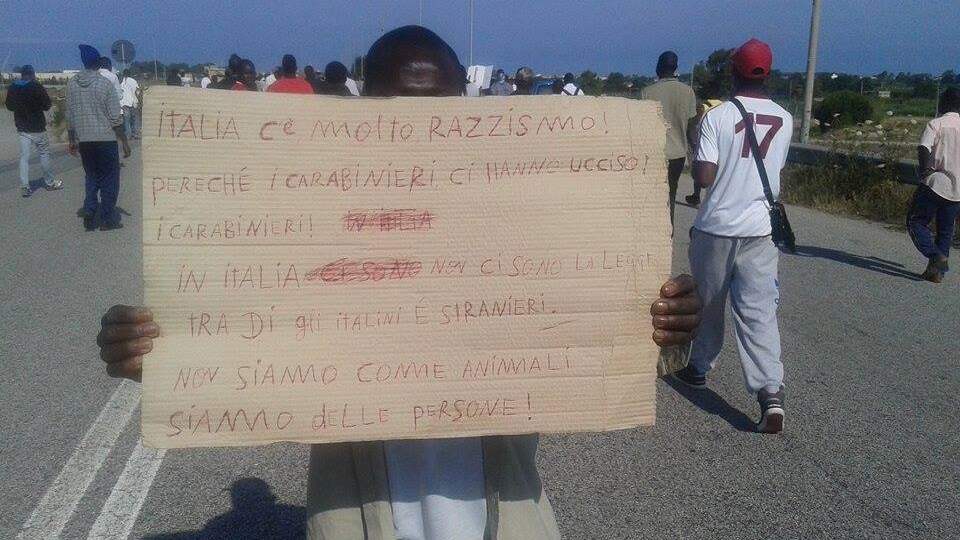 ITALIA C'è MOLTO RAZZISMO!
PERECHÉ I CARABINIERI CI HANNO UCCISO!
I CARABINIERI!
IN ITALIA NON CI SONO LA LEGGE
TRA DI gli ITALINI É STRANIERI.
NON SIAMO COME ANIMALI
SIAMO dELLE PERSONE!
17